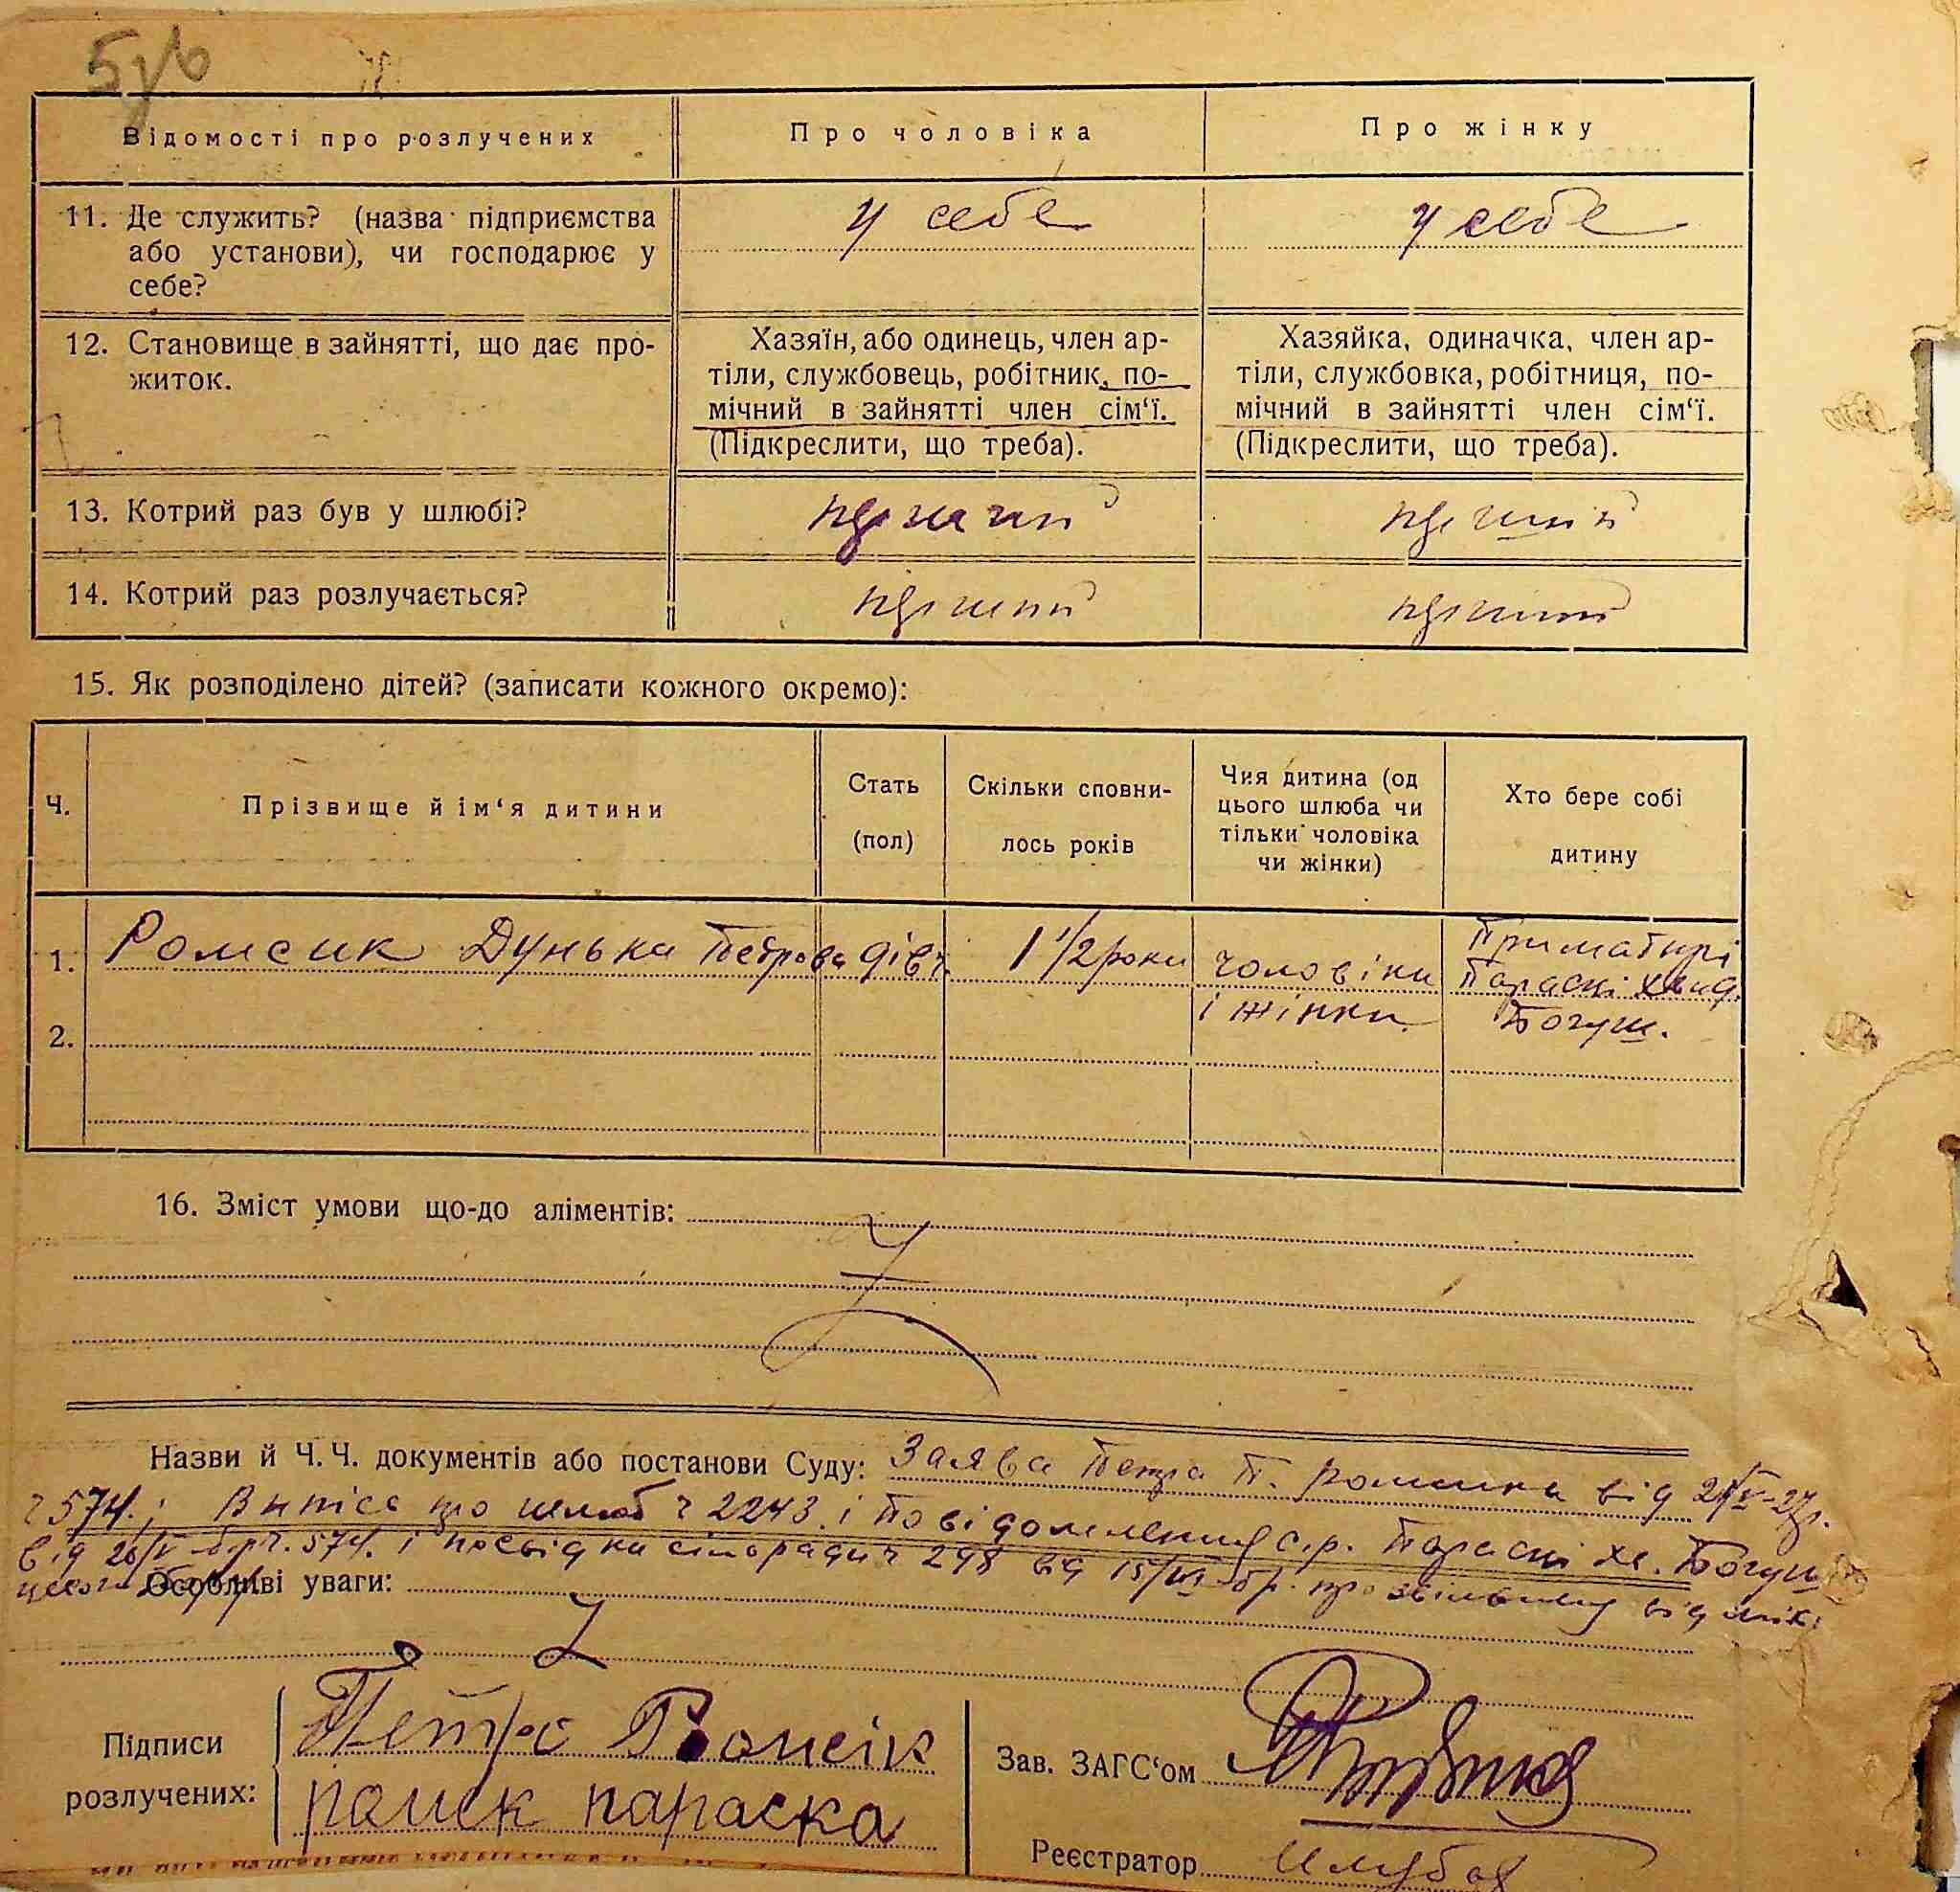 Відомості про розлучених
Про чоловіка
Про жінку
11. Де служить? (назва підприємства
або установи), чи господарює у
себе?
у себе
у себе
12. Становище в зайнятті, що дає про-
житок.
Хазяїн, або одинець, член ар-
тіли, службовець, робітник, по-
мічний в зайнятті член сім‘ї.
(Підкреслити, що треба).
Хазяйка, одиначка, член ар-
тіли, службовка, робітниця, по-
мічний в зайнятті член сім‘ї.
(Підкреслити, що треба).
13. Котрий раз був у шлюбі?
перший
перший
14. Котрий раз розлучається?
перший
перший
15. Як розподілено дітей? (записати кожного окремо):
Ч.
Прізвище й ім‘я дитини
Стать
(пол)
Скільки сповни-
лось років
Чия дитина (од
цього шлюба чи
тільки чоловіка
чи жінки)
Хто бере собі
дитину
1. Ромсик Дунька Петрова дівч. 1 1/2 роки
чоловіка
і жінки
При матирі
Параскі Хвид.
Богуш.
2.
16. Зміст умови що-до аліментів:
Назви й Ч. Ч. документів або постанови Суду: Заява Петра П. Ромсика від
ч 574.; Випісь про шлюб ч 2243. і Повідомлення с.р. Параскі Хв. Богуш
від 26/V б.р. ч. 574. і посвідка сільради ч 298 від 15/VI б.р. про звільнену від
Особливі уваги:
Підписи
розлучених:
Петро Ромсік
ромск параска
Зав. ЗАГС‘ом
Реєстратор